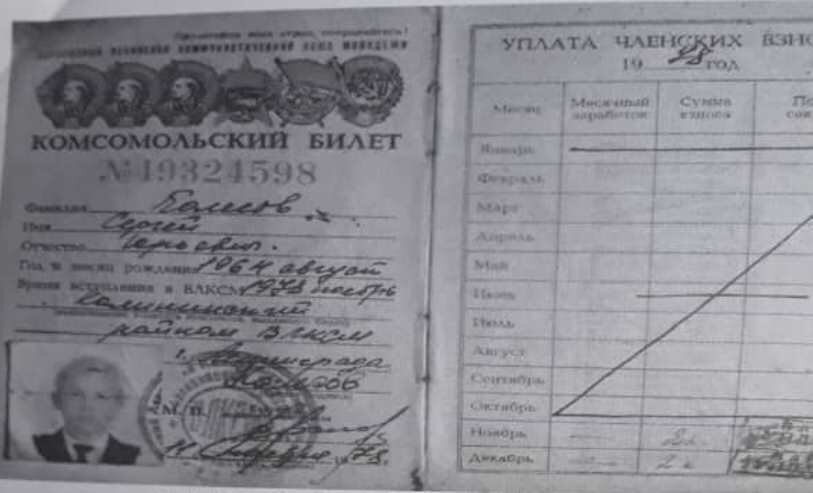 Пролетарии всех стран, соединяйтесь!
КОММУНИСТИЧЕСКИЙ СОЮЗ МОЛОДЕЖИ
КОМСОМОЛЬСКИЙ БИЛЕТ
№19324598
Фамилия
Имя Сергей
Отчество Юрьевич.
Год и месяц рождения 1964 август
Время вступления в ВЛКСМ 1978 ноябрь
Калининский
райком ВЛКСМ
г. Ленинграда
М. П.
1978
УПЛАТА ЧЛЕНСКИХ ВЗНО
19 78 ГОД
Месяц
Месячный заработок
Сумма взноса
Январь
Февраль
Март
Апрель
Май
Июнь
Июль
Август
Сентябрь
Октябрь
Ноябрь 2к
Декабрь 2к